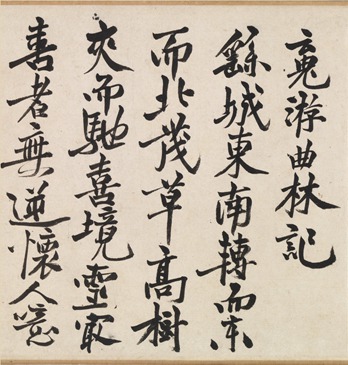 游曲林記
繇城東南轉而東
而北茂草高樹
夾而馳喜境靈㝡
善者無逆懷人